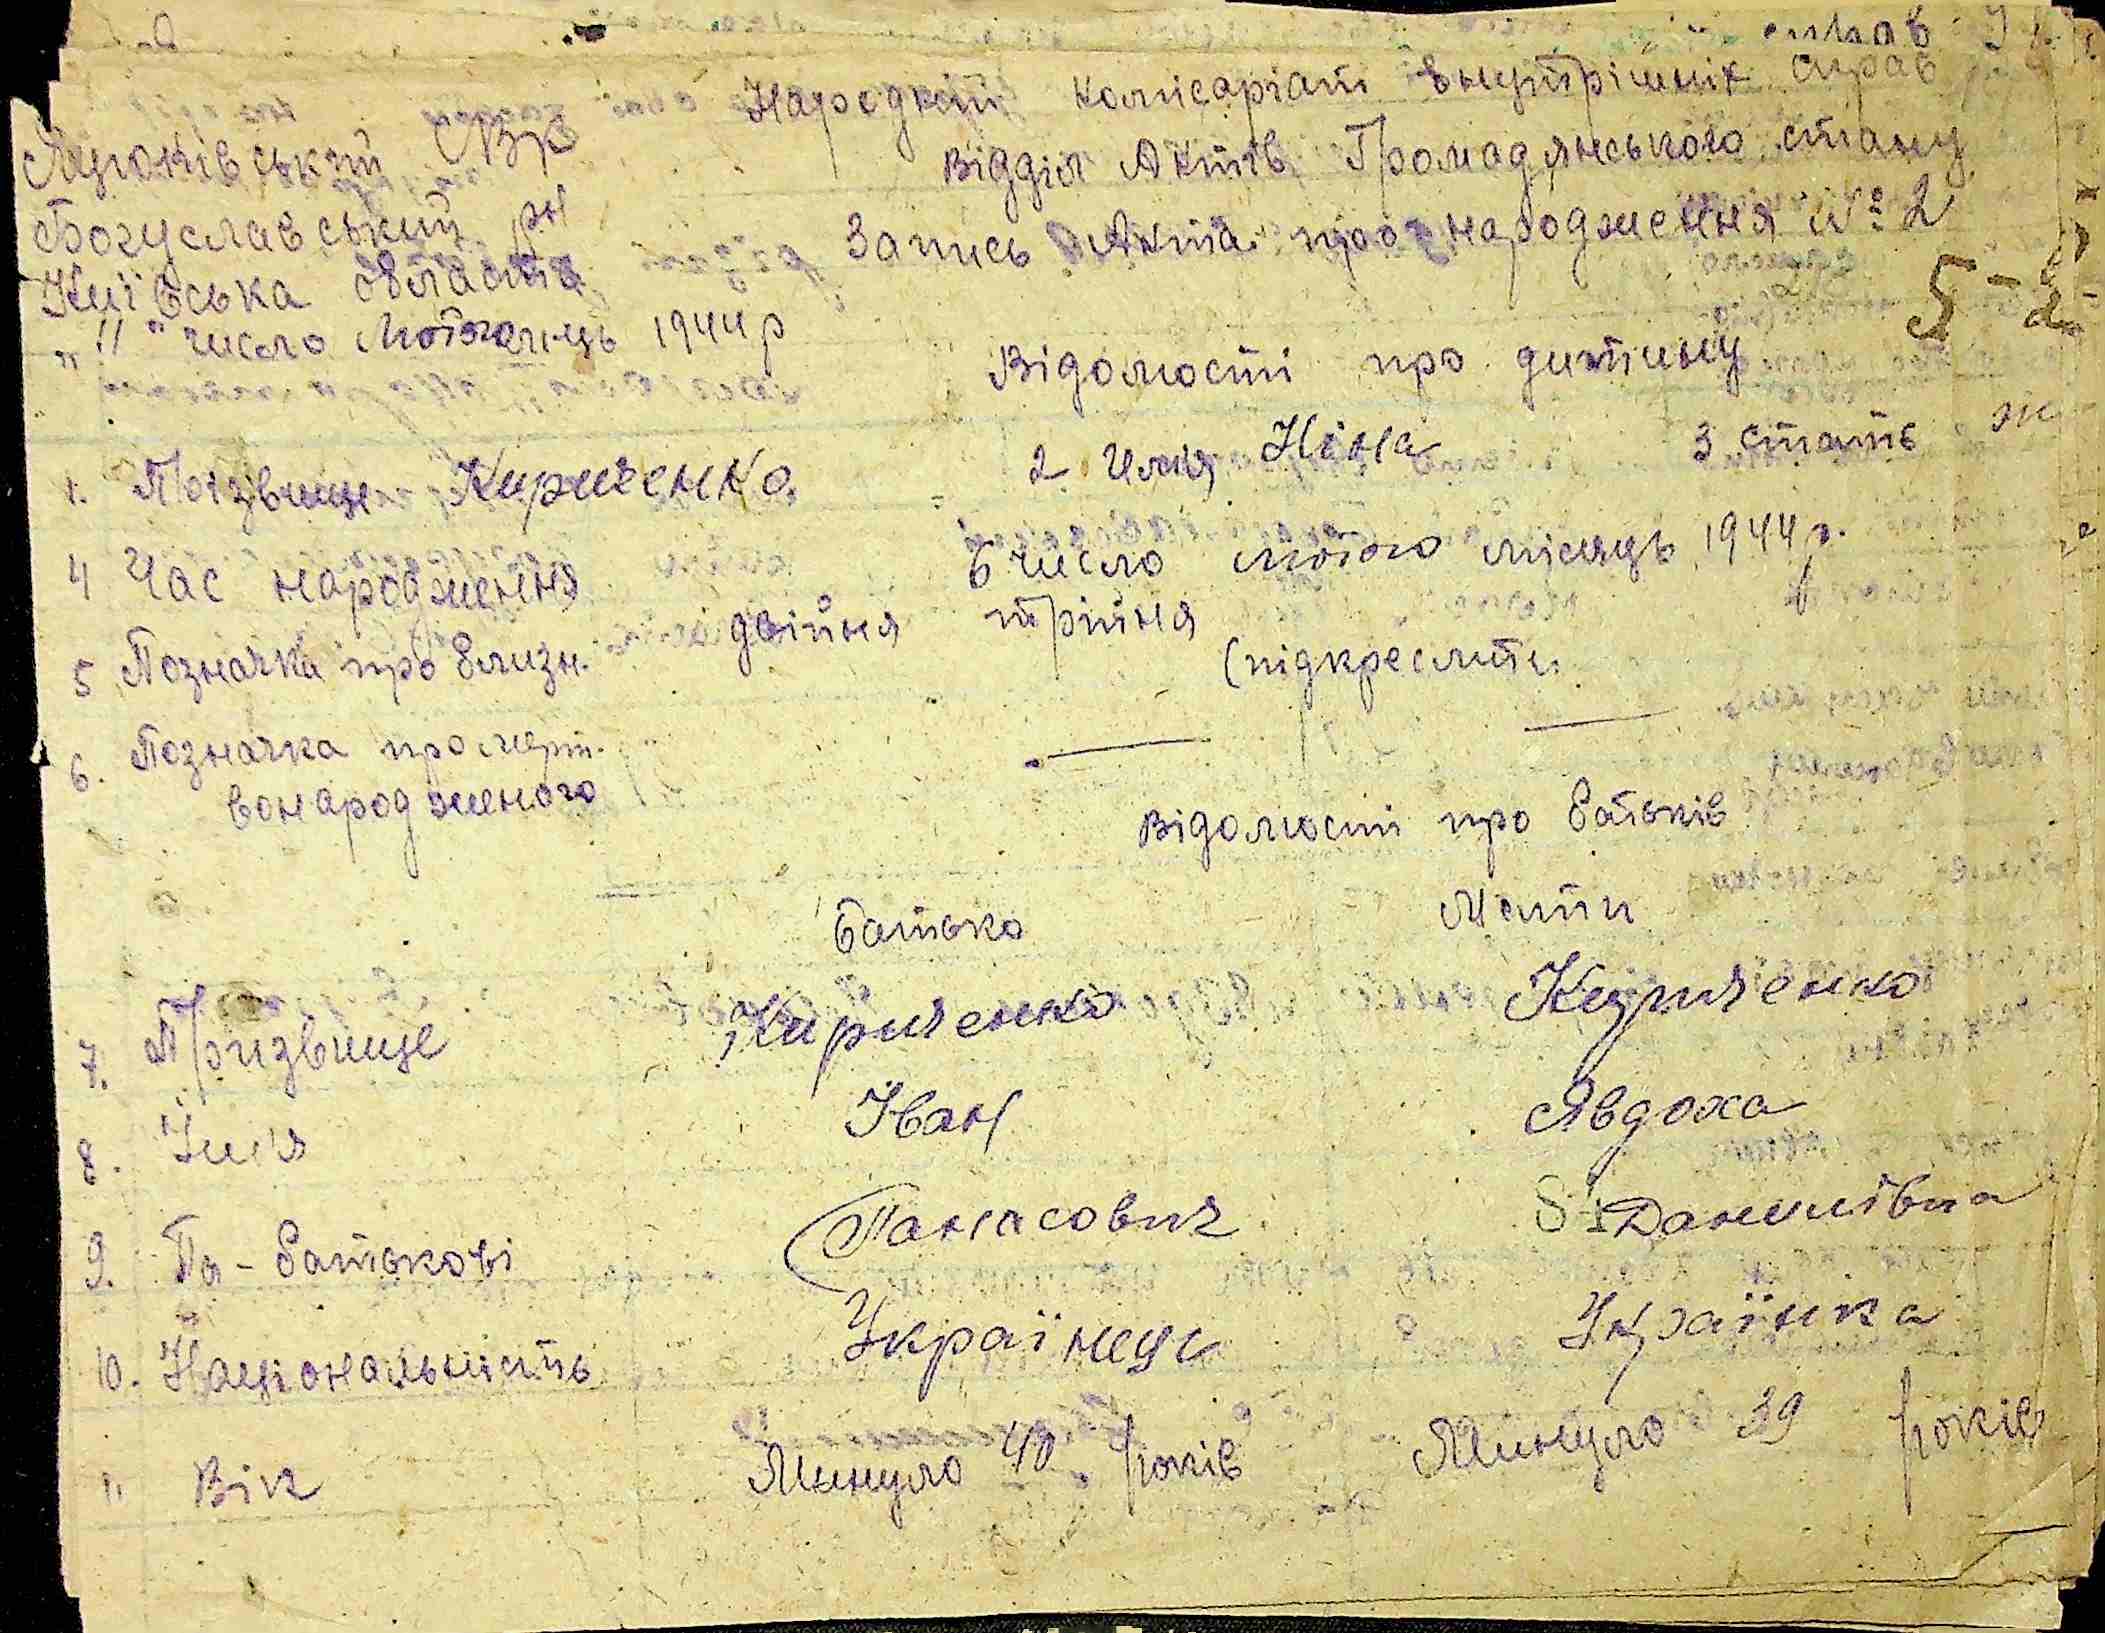 Народній комісаріат внутрішніх справ
Яцюківський СВР
Відділ Актів Громадянського стану
Богуславський рн
Запись Акта про народження № 2
Київська область
"11" число Лютого м-ць 1944 р
5-2
Відомості про дитину
1. Прізвище Кириченко 2 Имя Ніна 3 стать ж
4 Час народження 6 число лютого місяць 1944 р.
5 Позначка про близн. двійня трійня (підкреслити
6. Позначка про мерт-
вонародженого
Відомості про батьків
Батько Мати
7. Призвище Кириченко Кириченко
8. Імя Іван Явдоха
9. По-батькові Панасович Данилівна
10. Національність Українець Українка
11 Вік Минуло 40 років Минуло 39 років